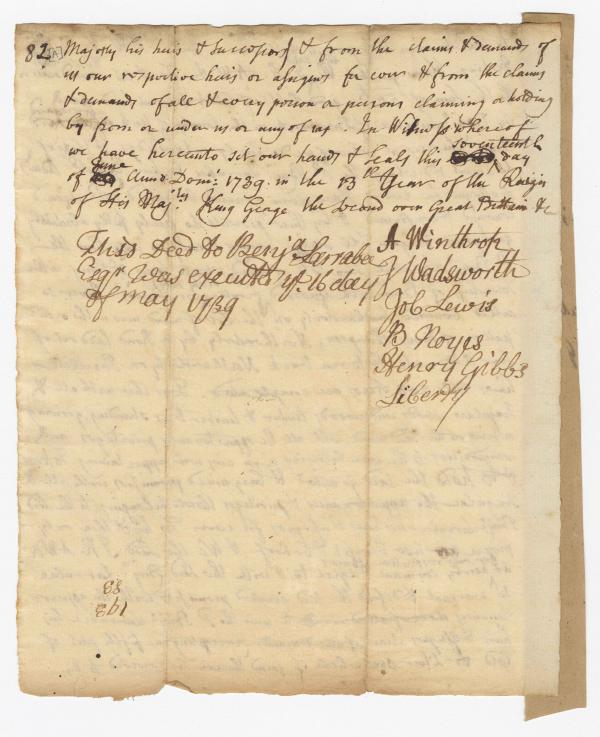 82 [A] Majesty his heirs & Successors & from the claims & demands of
us our respective heirs or assigns for ever & from the claims
& demands of all & every person or persons claiming or holding
by from or under us or any of us. In Witness whereof
we have hereunto set our hands & Seals this seventeenth day
of June Anno Domi: 1739 in the 13th Year of the Reign
of His Majtys King George the Second over Great Brittain &c
This Deed to Benja Larrabee
Esqr Was executed ye 16 day
of may 1739
A Winthrop
J Wadsworth
Job Lewis
B Noyes
Henry Gibbs
88